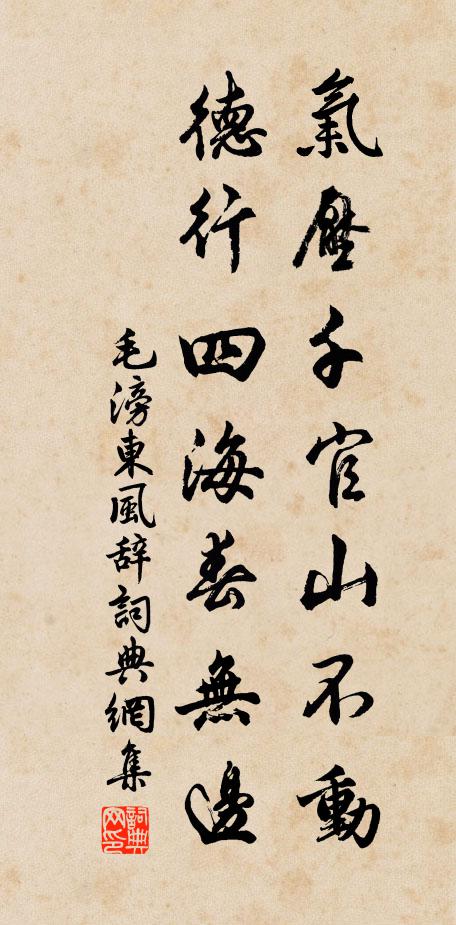 氣壓千官山不動
德行四海春無邊
毛滂東風辞詞典網集
詞典网印